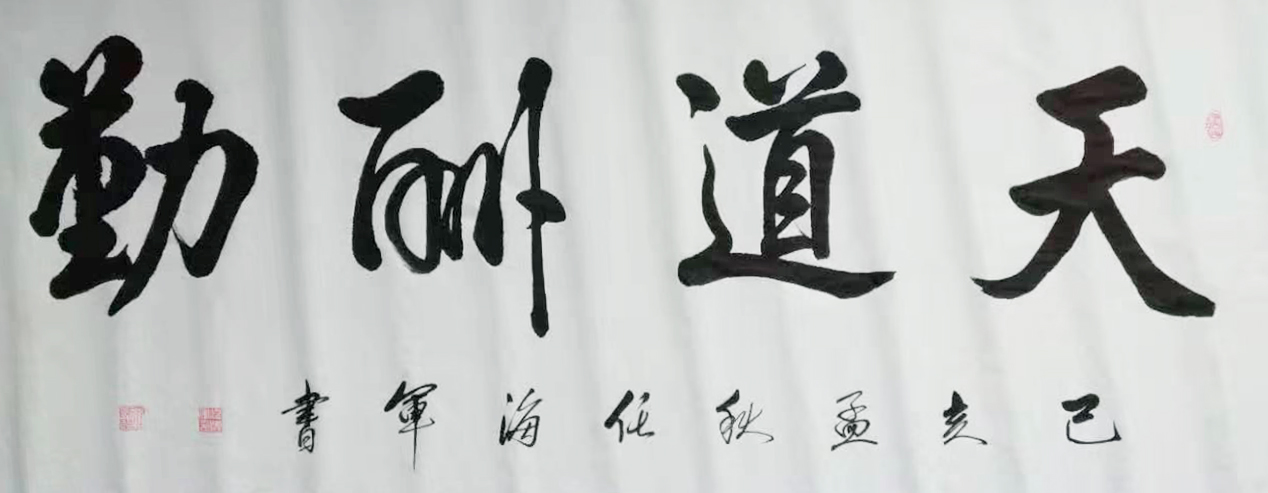 天道酬勤
己亥孟秋任海軍書